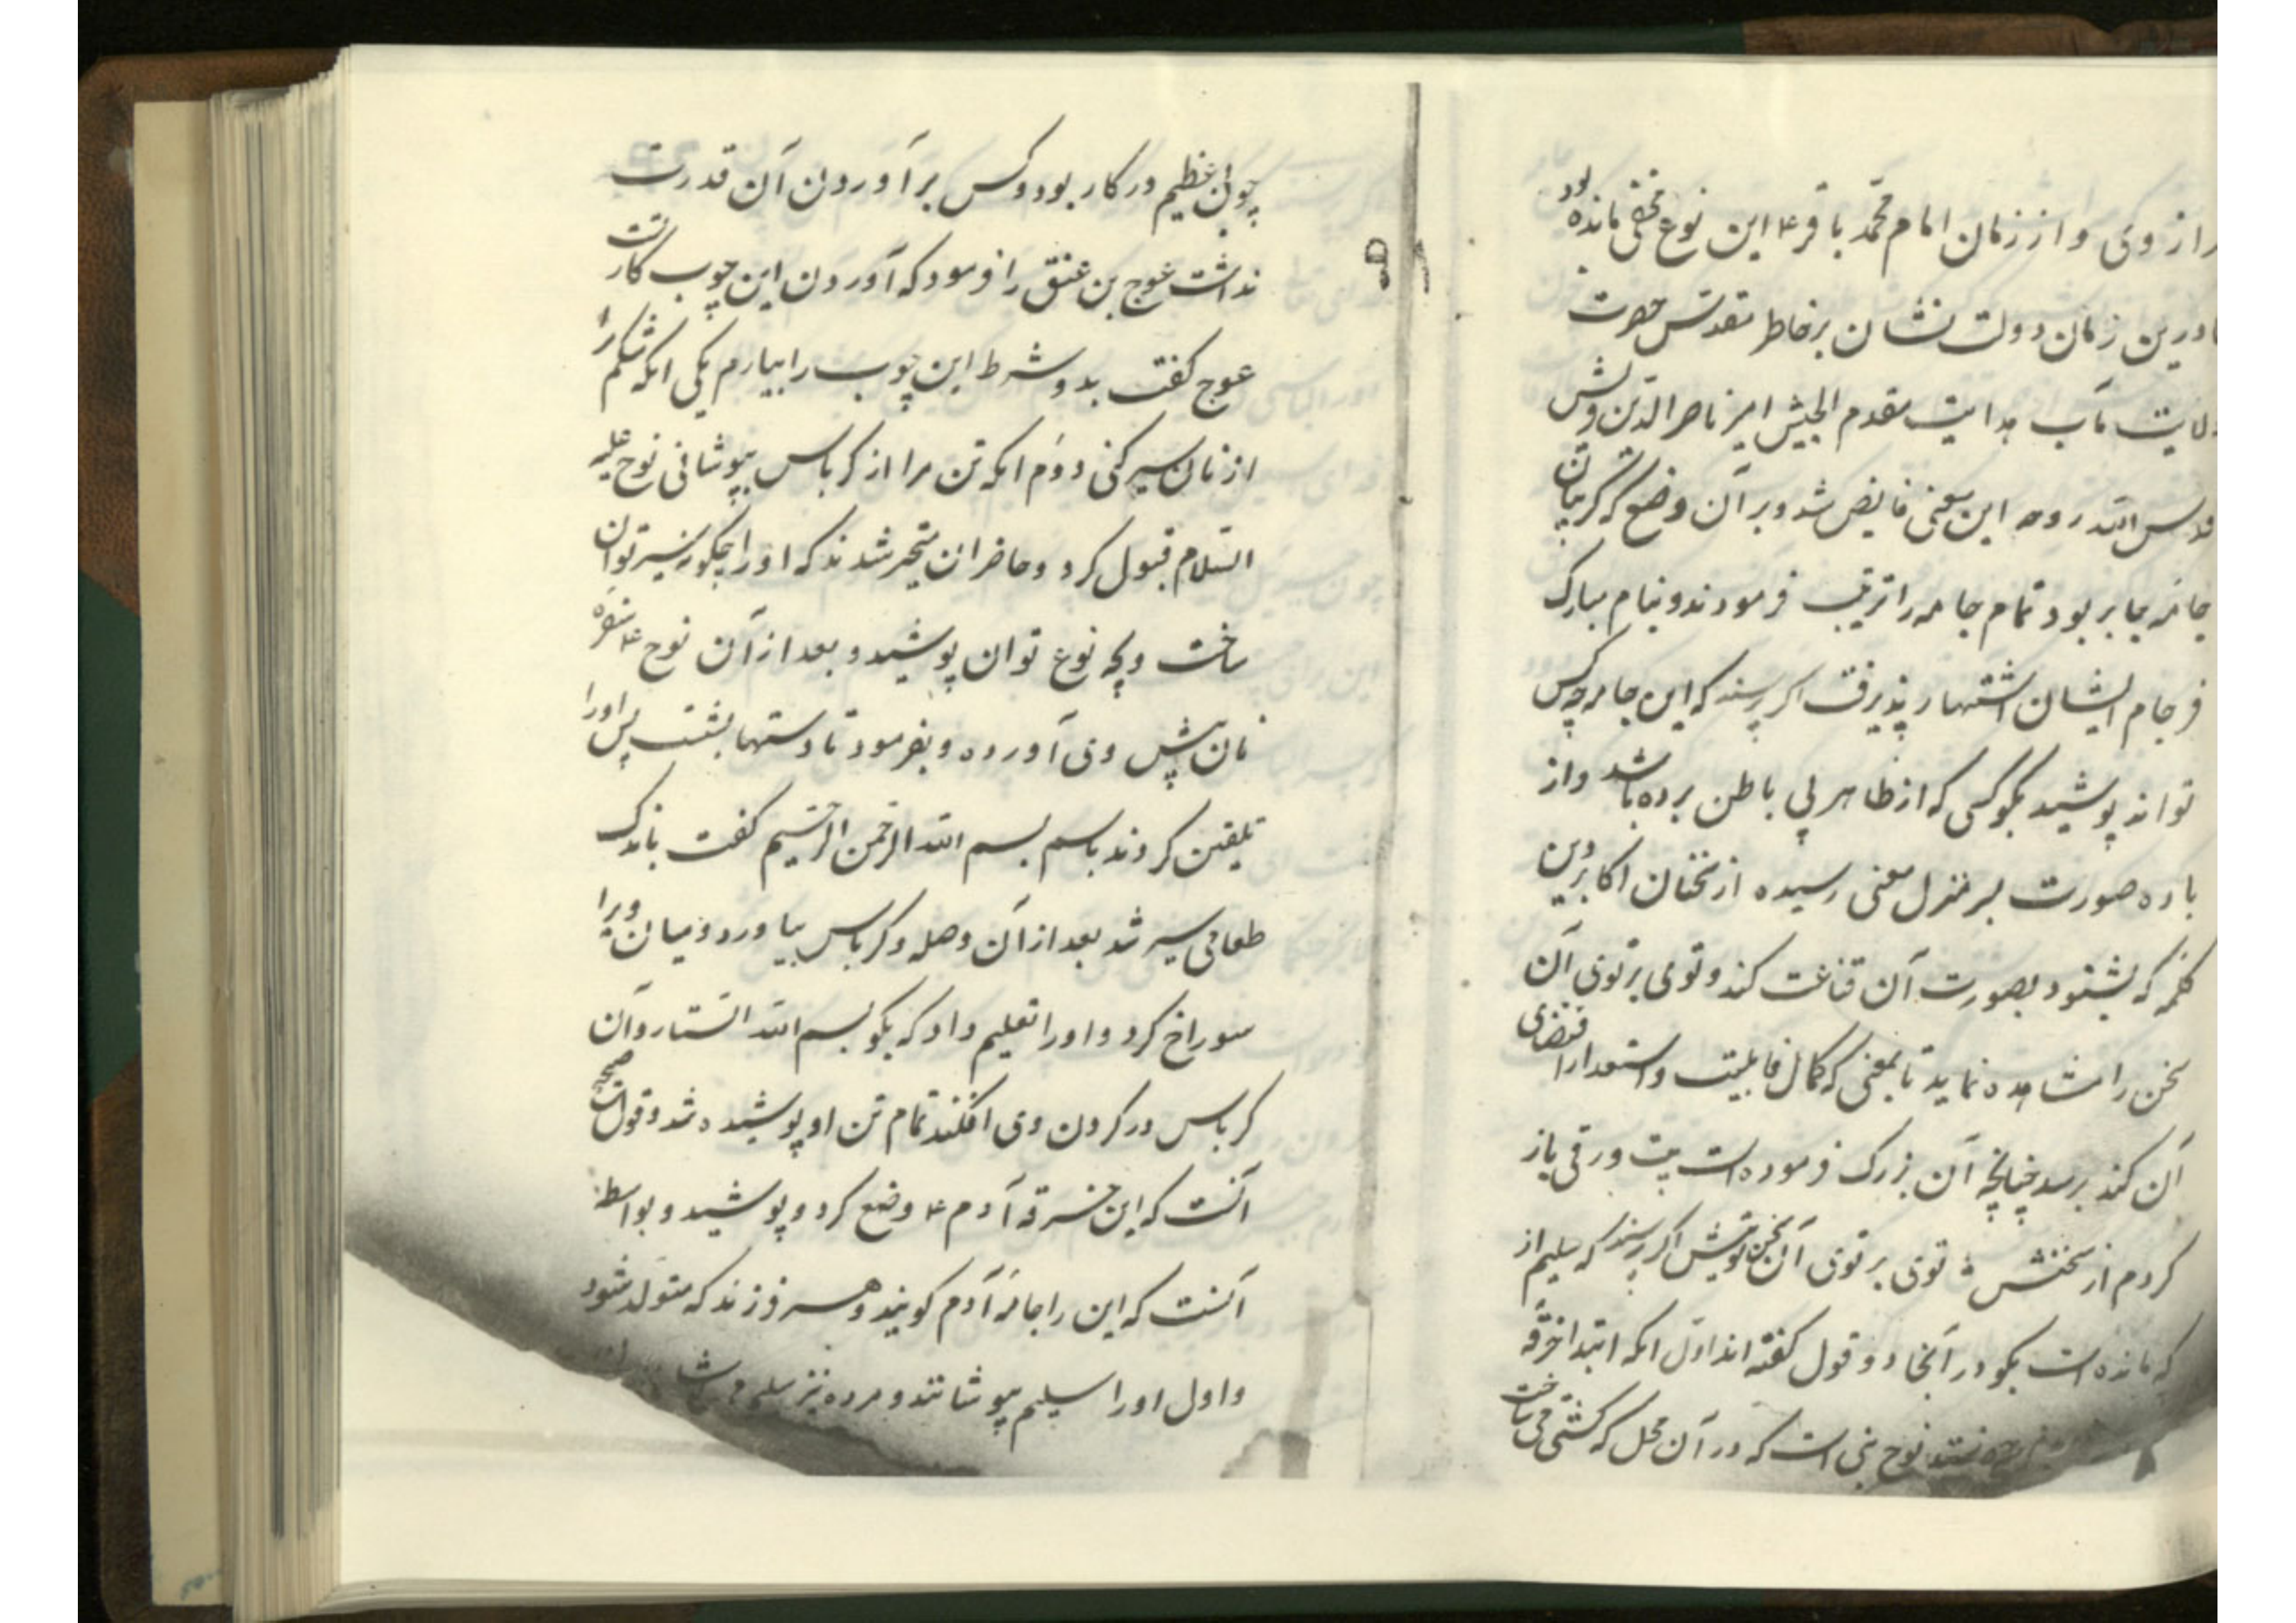 از وی و از زمان امام محمد باقر ع این نوع مخفی مانده بود
درین زمان دولت نشان بر خاطر مقدس حضرت
ولایت مآب هدایت مقدم الجیش امیر ناصر الدین
قدس الله روحه این معنی فایض شد و بر آن وضع که کریبان
جامه جابر بود تمام جامه را ترتیب فرمودند و بنام مبارک
فرجام ایشان اشتهار پذیرفت اکر پرسند که این جامه چه کس
تواند پوشید بکو کسی که از ظاهر پی باطن برده باشد و از
باده صورت بسر منزل معنی رسیده از سخنان اکابر دین
کلمه که بشنود بصورت آن قناعت کند و توی بر توی آن
سخن را مشاهده نماید تا بمعنی که کمال قابلیت و استعداد اقتضای
آن کند برسد چنانچه آن بزرک فرموده است بیت ورقی باز
کردم از سخنش توی بر توی آن سخن اکر پرسند که سلیم از
که مانده است بکو در آنجا دو قول کفته اند اول انکه ابتدا خرقه
نوح نبی است که در آن محل که کشتی می ساخت
چوبی عظیم در کار بود و کس بر آوردن آن قدرت
نداشت عوج بن عنق را فرمود که آوردن این چوب کار تست
عوج کفت بدو شرط این چوب را بیارم یکی انکه شکم را
از نان سیر کنی دوم انکه تن مرا از کرباس بپوشانی نوح علیه
السلام قبول کرد و حاضران متحیر شدند که او را چکونه سیر توان
ساخت و بچه نوع توان پوشید و بعد از آن نوح ع سفره
نان پیش وی آورده و بفرمود تا دستها بشست پس او را
تلقین کردند باسم بسم الله الرحمن الرحیم کفت باندک
طعامی سیر شد بعد از آن وصله و کرباس بیاورد و میان ویرا
سوراخ کرد و او را تعلیم داد که بکو بسم الله الستار و آن
کرباس در کردن وی افکند تمام تن او پوشیده شد و قول صحیح
آنست که این خرقه آدم ع وضع کرد و پوشید و بواسطه
آنست که این را جامه آدم کویند و هر فرزند که متولد شود
و اول او را سلیم پوشانند و مرده نیز سلیم